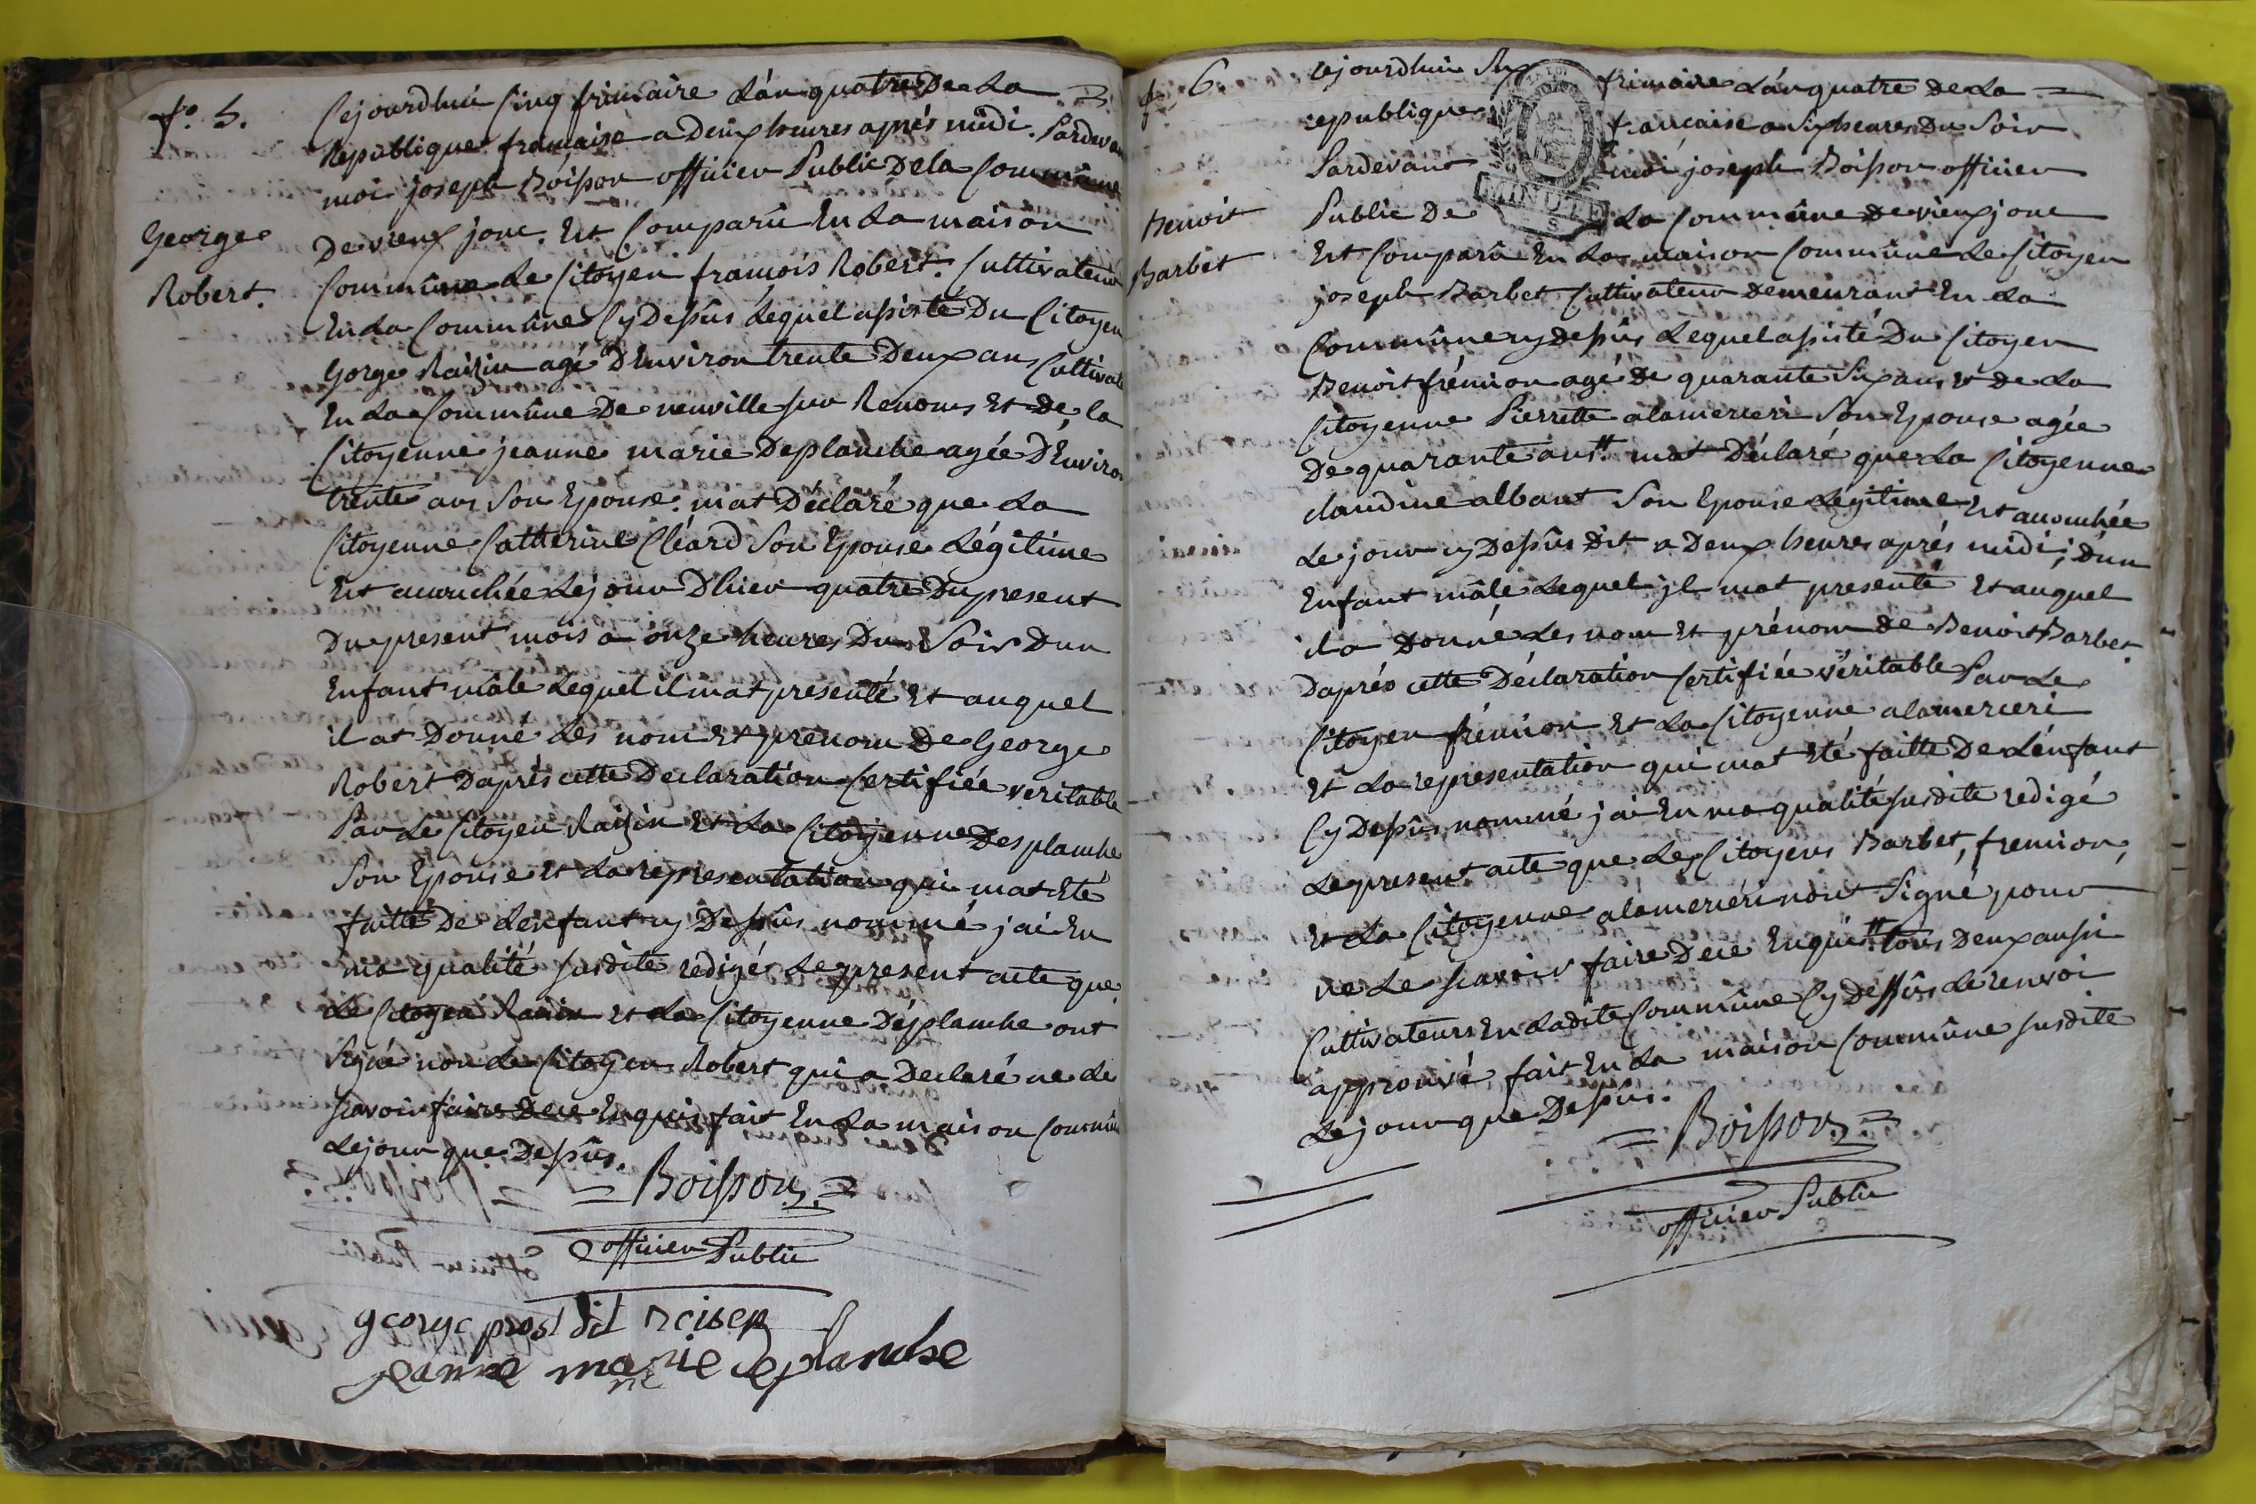 fo. 5.
George
Robert.
Cejourdhui Cinq frimaire Lán quatre De La
Republique française a Deux heures aprés midi. Pardevan
moi joseph Boisson officier Public De la Commûne
De vieux jonc. Est Comparû En La maison
Commûne Le Citoyen françois Robert. Cultivateur
En La Commûne Cy Dessûs Lequel assisté Du Citoyen
Gorge Raizin agé D'Environ trente Deux ans Cultivat
En La Commûne De neuville sur Renom Et de la
Citoyenne jeanne marie Deplanche agée D'Enviro
trente ans Son Epouse. mat Déclaré que La
Citoyenne Catherine Cléard Son Epouse Légitime
Est accouchée Le jour Dhier quatre Du present
Du present mois a onze heures Du Soir Dun
Enfant mâle Lequel il mat presenté Et auquel
il at Donné Les nom Et prenom De George
Robert Daprès cette Declaration Certifiée veritable
Par Le Citoyen Raizin Et La Citoyenne Desplanche
Son Epouse Et La representation qui mat Eté
faitte De Lenfant cy Dessûs nommé jai En
ma qualité susdite redigé Le present acte que
Le Citoyen Raizin Et La Citoyenne Désplanche ont
Signé non Le Citoyen Robert qui a Declaré ne Le
sçavoir faire De ce Enquis fait En La maison Commûn
Le jour que Dessûs.
= Boisson =
officier Public
george prost dit reisen
jeanne marie deplanche
f. 6.
Benoit
Barbet
Cejourdhui Six frimaire Lán quatre De La =
republique française a Six heures Du Soir
Pardevant moi joseph Boisson officier
MINUTE
Public De La Commûne de vieux jonc
Est Comparû En La maison Commûne Le Citoyen
joseph Barbet Cultivateur Demeurant En La
Commûne cy dessûs Lequel assisté Du Citoyen
Benoit frémion agé De quarante Six ans Et de La
Citoyenne Pierrette alamercieri Son Epouse agée
De quarante ans# mat Déclaré que La Citoyenne
claudine albant Son Epouse Légitime Est accouchée
Le jour cy Dessûs Dit a Deux heures aprés midi; D'un
Enfant mâle Lequel jl mat presenté Et auquel
il a Donné Les nom Et prénom de Benoit Barbet
Daprés cette Déclaration Certifiée véritable Par Le
Citoyen frémion Et La Citoyenne alamercieri
Et La representation qui mat Eté faitte De Lénfant
Cy Dessûs nommé jai En ma qualité susdite redigé
Le present acte que Les Citoyens Barbet, fremion,
Et La Citoyenne alamerciéri nont Signé pour
ne Le sçavoir faire De ce Enquis# tous Deux aussi
Cultivateurs En Ladite Commûne Cy Dessûs Le renvoi
approuvé fait En La maison Commûne susdite
Le jour que Dessus.
= Boisson =
officier Public